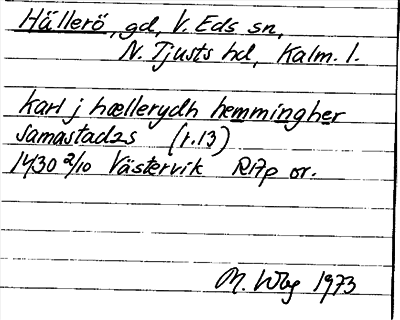 Hällerö, gd, V. Eds sn,
N. Tjusts hd, Kalm. l.
karl j hællerydh hemmingher
samastadzs (r.13)
1430 2/10 Västervik RAp or.
M. Wbg 1973